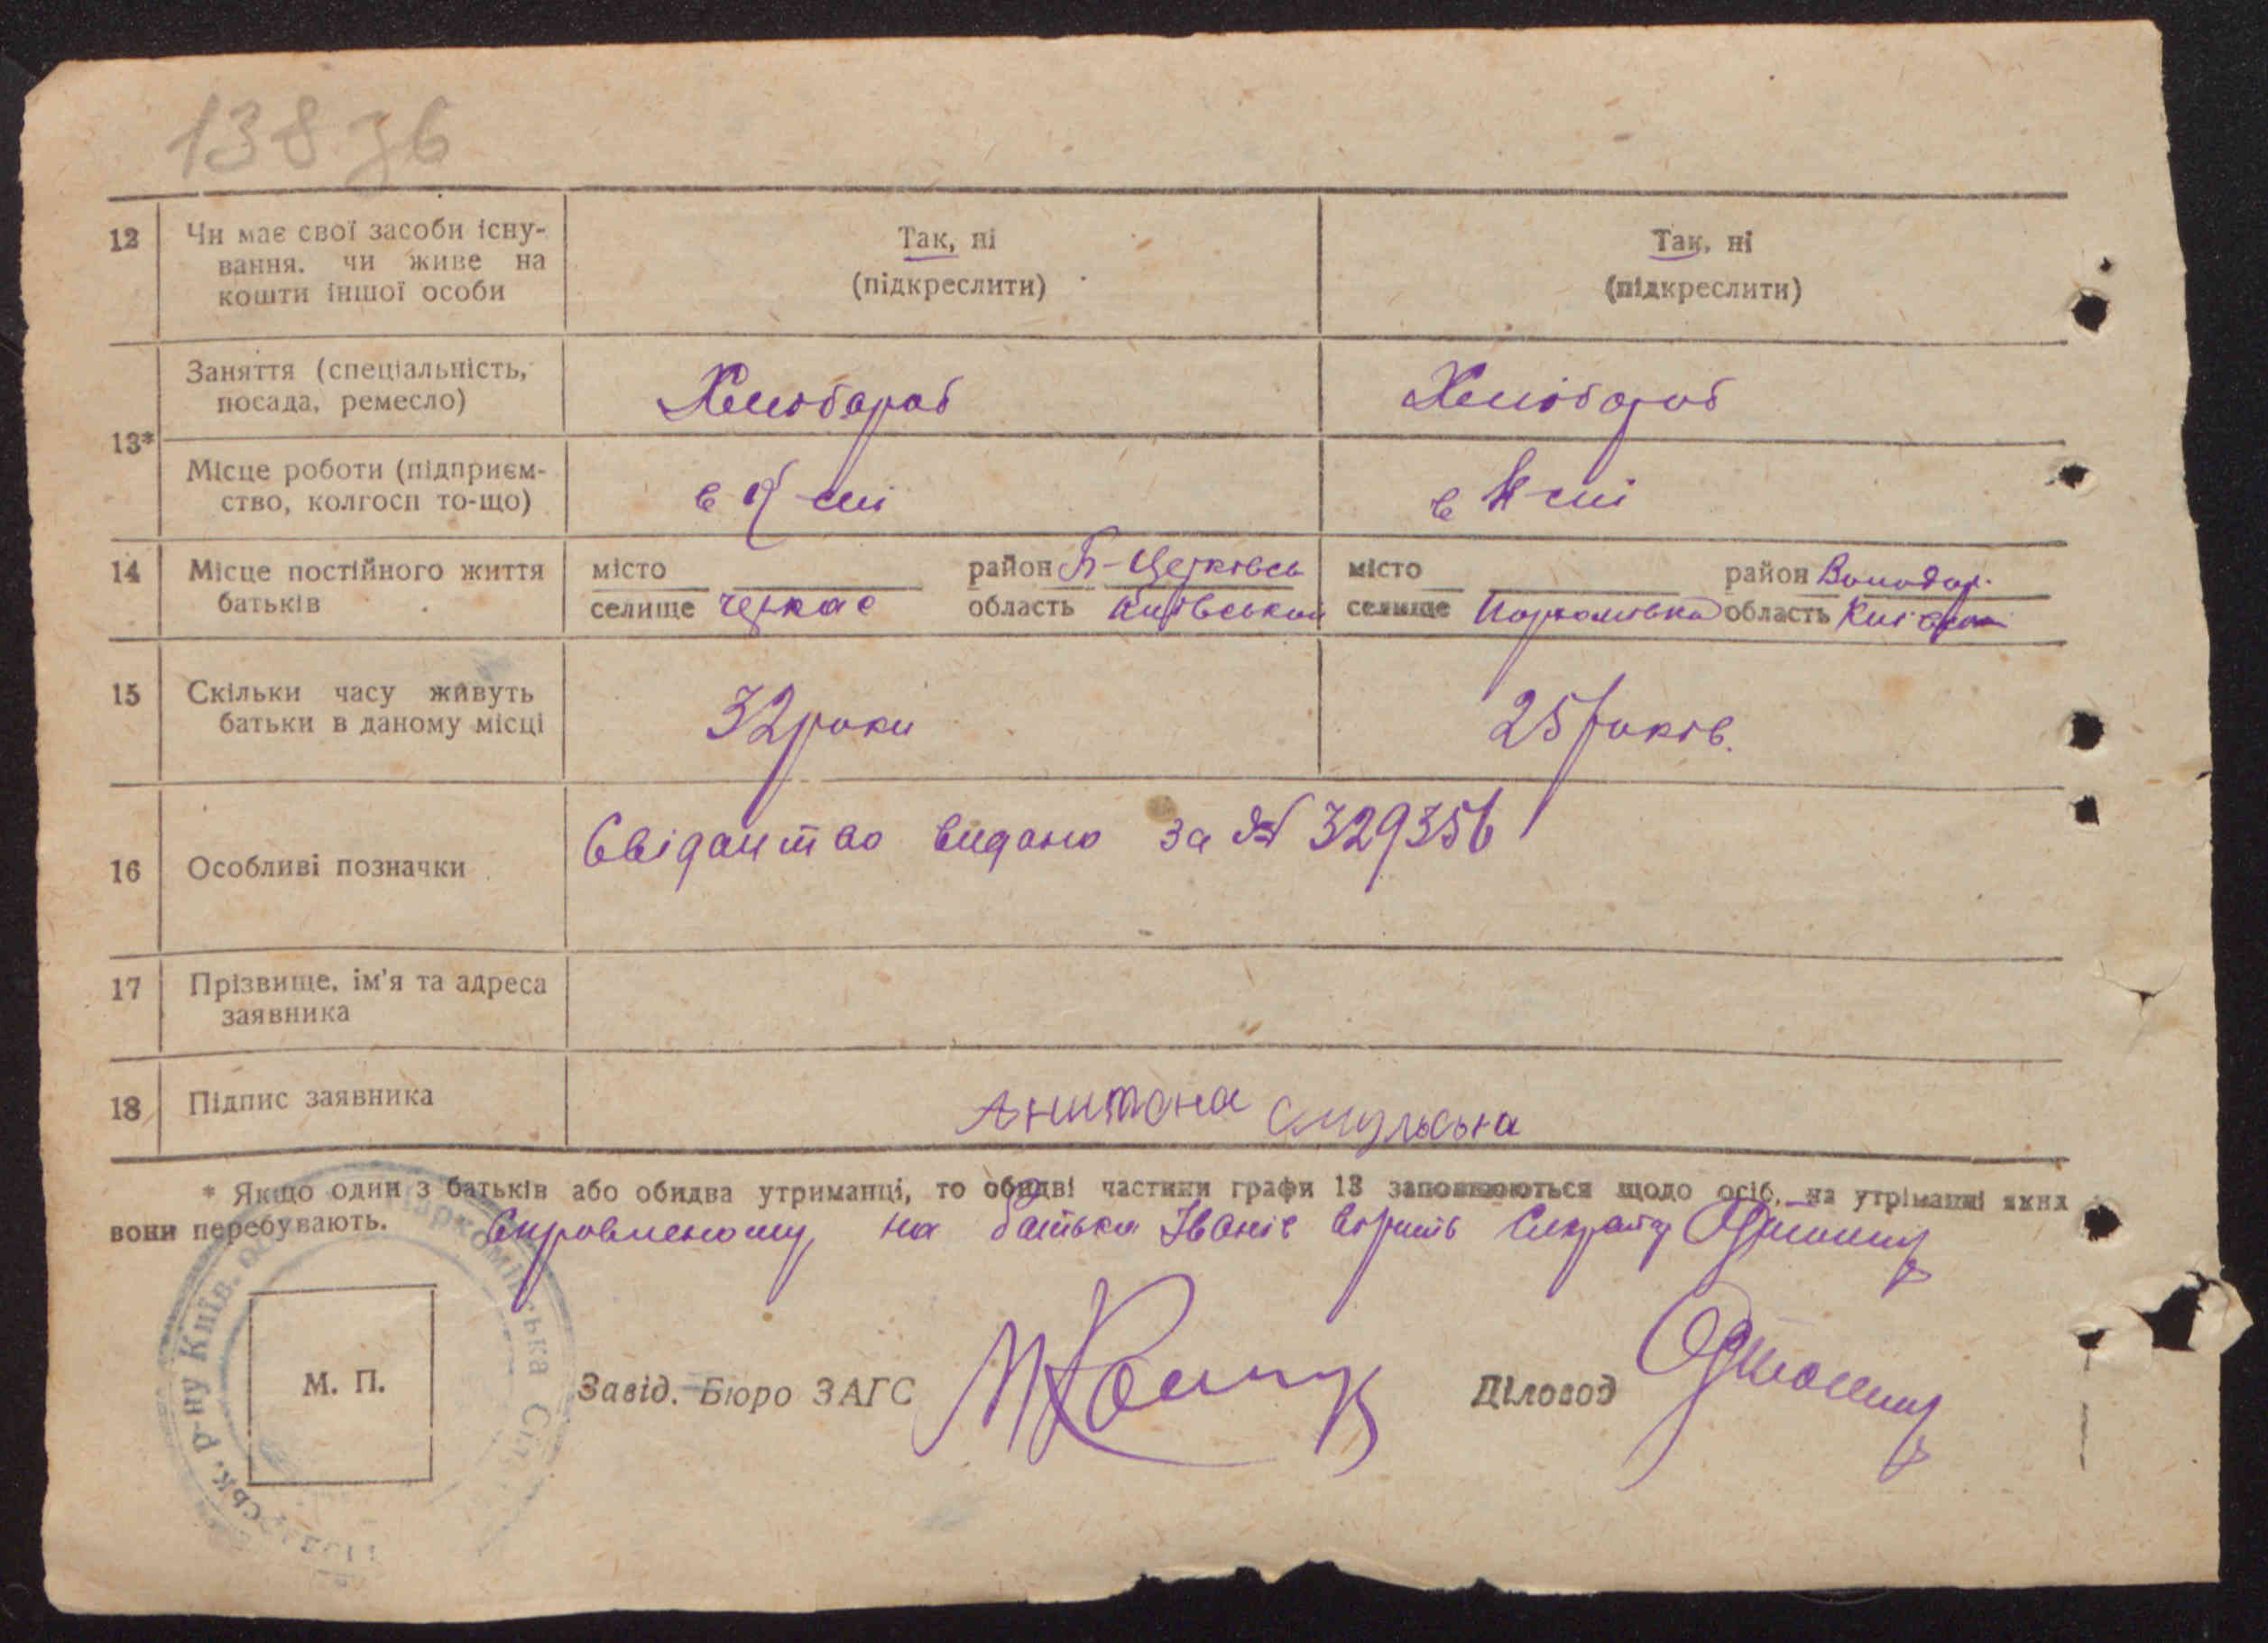 138 зв
12 Чи має свої засоби існу-
вання. чи живе на
кошти іншої особи
Так, ні
(підкреслити)
Так, ні
(підкреслити)
13*
Заняття (спеціальність,
посада, ремесло)
Хлібороб
Хлібороб
Місце роботи (підприєм-
ство, колгосп то-що)
в
в
14 Місце постійного життя
батьків
місто район Б-Церківсь
селище Черкас область Київської
місто район Володар.
селище область
15 Скільки часу живуть
батьки в даному місці
32 роки
25 років.
16 Особливі позначки
Свідоцтво видано за № 329356
17 Прізвище, ім'я та адреса
заявника
18 Підпис заявника
Смульська
* Якщо один з батьків або обидва утриманці, то обидві частини графи 13 заповнюються щодо осіб, на утріманні яких
вони перебувають.
на батька Іваніс вірить
М. П.
Завід. Бюро ЗАГС
Діловод